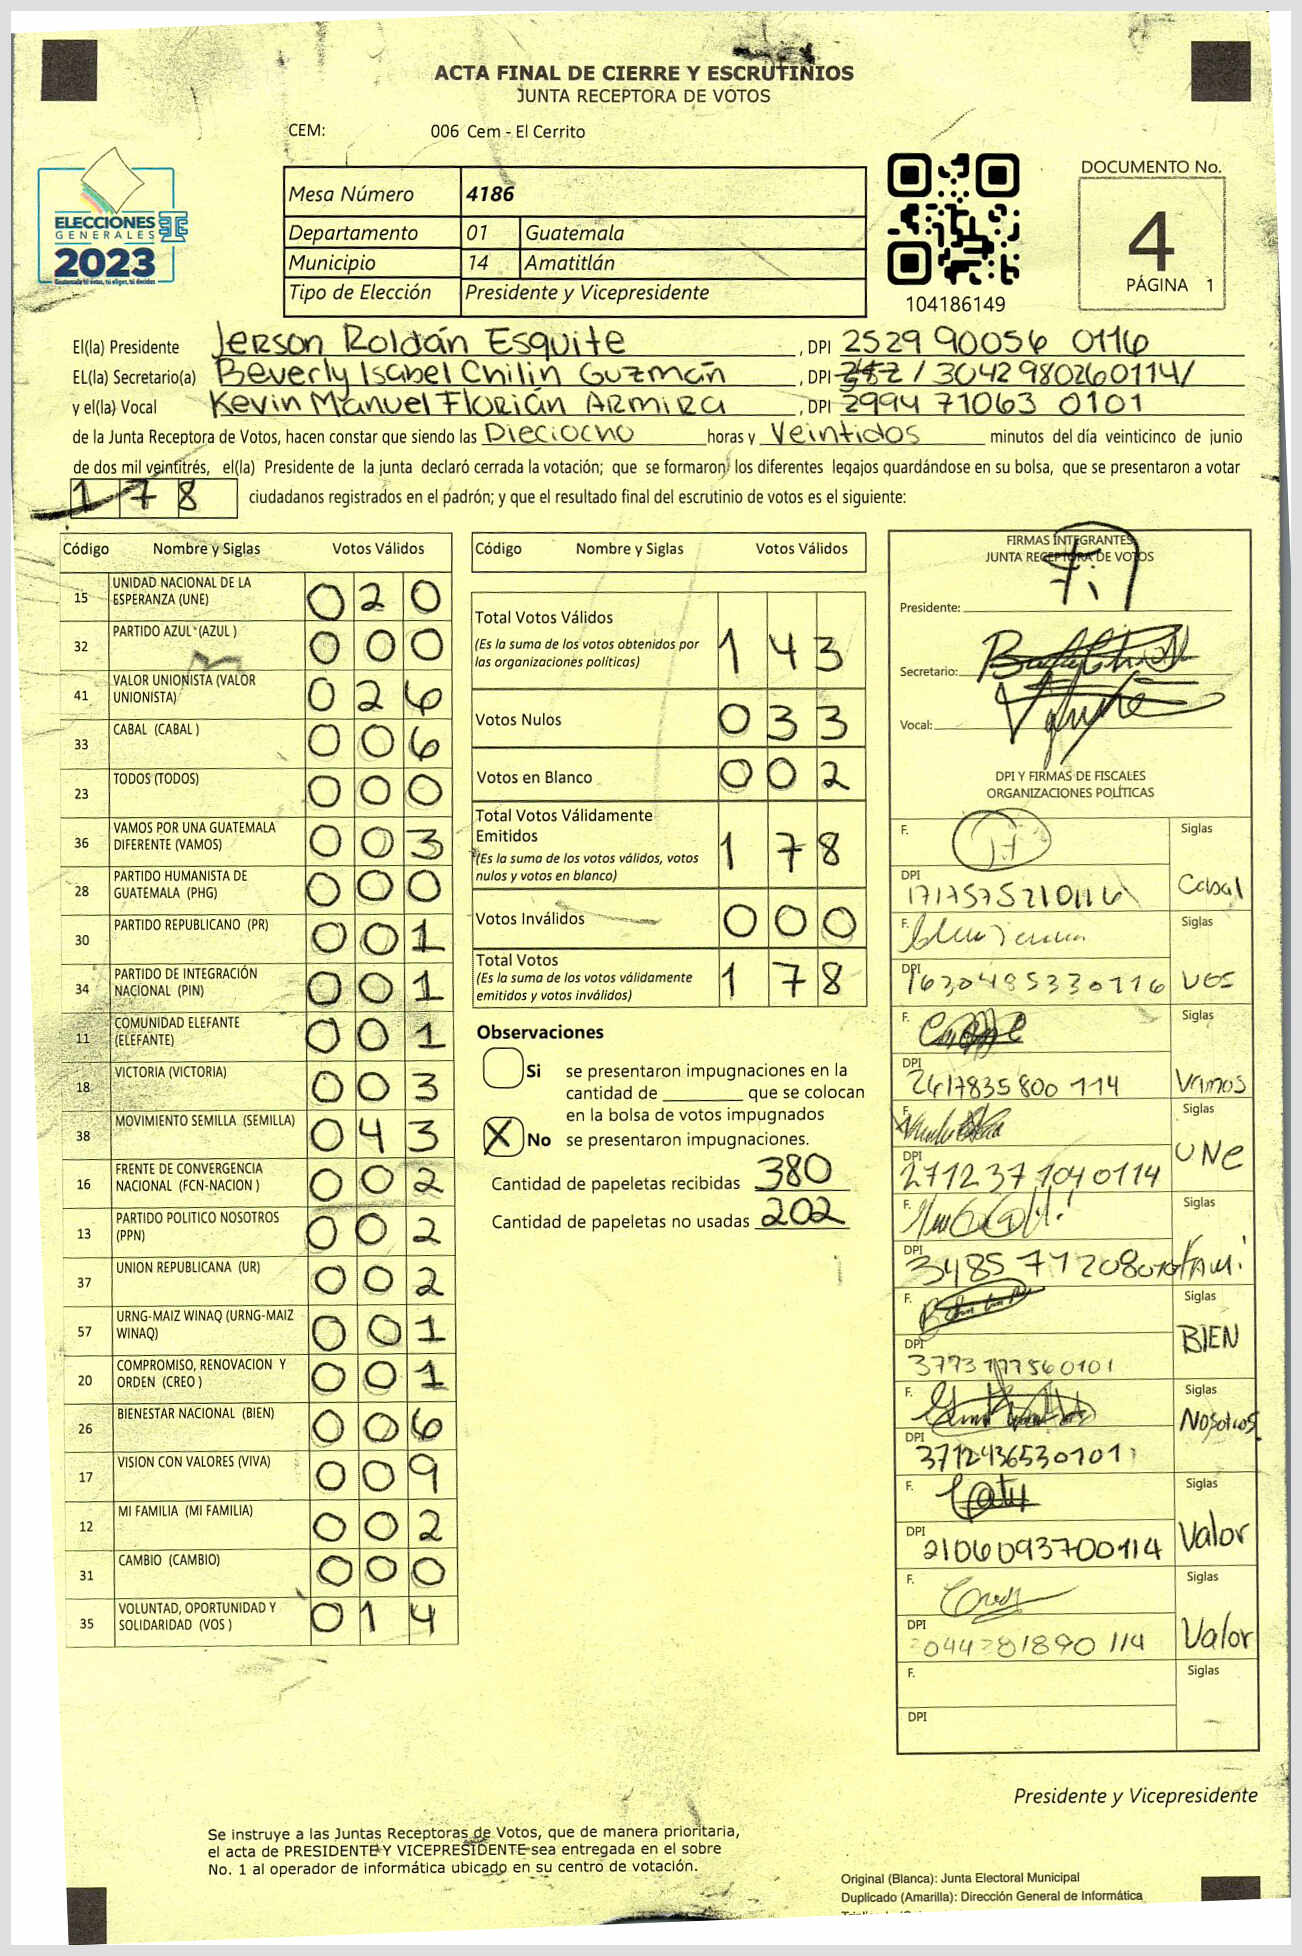 ACTA FINAL DE CIERRE Y ESCRUTINIOS
JUNTA RECEPTORA DE VOTOS
CEM: 006 Cem - El Cerrito
ELECCIONES
GENERALES
2023
Mesa Número 4186
Departamento 01 Guatemala
Municipio 14 Amatitlán
Tipo de Elección Presidente y Vicepresidente
104186149
DOCUMENTO No.
4
PÁGINA 1
El(la) Presidente Jerson Roldán Esquite, DPI 2529 90056 0116
EL(la) Secretario(a) Beverly Isabel Chilin Guzmán, DPI / 3042980260114/
y el(la) Vocal Kevin Manuel Florián Armira, DPI 2994 71063 0101
de la Junta Receptora de Votos, hacen constar que siendo las Dieciocho horas y Veintidos minutos del día veinticinco de junio
de dos mil veintitrés, el(la) Presidente de la junta declaró cerrada la votación; que se formaron los diferentes legajos guardándose en su bolsa, que se presentaron a votar
178 ciudadanos registrados en el padrón; y que el resultado final del escrutinio de votos es el siguiente:
Código Nombre y Siglas Votos Válidos
15 UNIDAD NACIONAL DE LA ESPERANZA (UNE) 020
32 PARTIDO AZUL (AZUL ) 000
41 VALOR UNIONISTA (VALOR UNIONISTA) 026
33 CABAL (CABAL ) 006
23 TODOS (TODOS) 000
36 VAMOS POR UNA GUATEMALA DIFERENTE (VAMOS) 003
28 PARTIDO HUMANISTA DE GUATEMALA (PHG) 000
30 PARTIDO REPUBLICANO (PR) 001
34 PARTIDO DE INTEGRACIÓN NACIONAL (PIN) 001
11 COMUNIDAD ELEFANTE (ELEFANTE) 001
18 VICTORIA (VICTORIA) 003
38 MOVIMIENTO SEMILLA (SEMILLA) 043
16 FRENTE DE CONVERGENCIA NACIONAL (FCN-NACION ) 002
13 PARTIDO POLITICO NOSOTROS (PPN) 002
37 UNION REPUBLICANA (UR) 002
57 URNG-MAIZ WINAQ (URNG-MAIZ WINAQ) 001
20 COMPROMISO, RENOVACION Y ORDEN (CREO ) 001
26 BIENESTAR NACIONAL (BIEN) 006
17 VISION CON VALORES (VIVA) 009
12 MI FAMILIA (MI FAMILIA) 002
31 CAMBIO (CAMBIO) 000
35 VOLUNTAD, OPORTUNIDAD Y SOLIDARIDAD (VOS ) 014
Código Nombre y Siglas Votos Válidos
Total Votos Válidos 143
(Es la suma de los votos obtenidos por
las organizaciones políticas)
Votos Nulos 033
Votos en Blanco 002
Total Votos Válidamente
Emitidos 178
(Es la suma de los votos válidos, votos
nulos y votos en blanco)
Votos Inválidos 000
Total Votos 178
(Es la suma de los votos válidamente
emitidos y votos inválidos)
Observaciones
Si se presentaron impugnaciones en la
cantidad de ________ que se colocan
en la bolsa de votos impugnados
X No se presentaron impugnaciones.
Cantidad de papeletas recibidas 380
Cantidad de papeletas no usadas 202
FIRMAS INTEGRANTES
JUNTA RECEPTORA DE VOTOS
Presidente:
Secretario:
Vocal:
DPI Y FIRMAS DE FISCALES
ORGANIZACIONES POLÍTICAS
F. Siglas
DPI Cabal
F. Siglas
DPI 1630485330116 VOS
F. Siglas
DPI 2417835800114 Vamos
F. Siglas
DPI 2712371040114 UNE
F. Siglas
DPI
F. Siglas
DPI BIEN
F. Siglas
DPI 3712436530101 Nosotros
F. Siglas
DPI 2106093700114 Valor
F. Siglas
DPI Valor
F. Siglas
DPI
Presidente y Vicepresidente
Se instruye a las Juntas Receptoras de Votos, que de manera prioritaria,
el acta de PRESIDENTE Y VICEPRESIDENTE sea entregada en el sobre
No. 1 al operador de informática ubicado en su centro de votación.
Original (Blanca): Junta Electoral Municipal
Duplicado (Amarilla): Dirección General de Informática